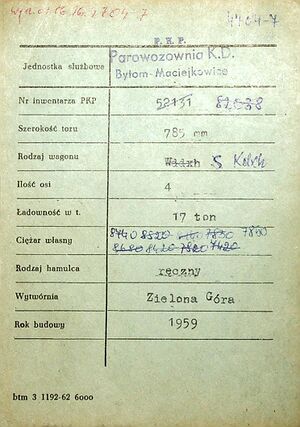 4404-7
P. K. P.
Jednostka służbowa Parowozownia K.D.
Bytom-Maciejkowice
Nr inwentarza PKP 52131 82038
Szerokość toru 785 mm
Rodzaj wagonu Wddxh S Kddxh
Ilość osi 4
Ładowność w t. 17 ton
Ciężar własny 8440 8520 7850 7800
8680 8420 7820 7420
Rodzaj hamulca ręczny
Wytwórnia Zielona Góra
Rok budowy 1959
btm 3 1192-62 6000